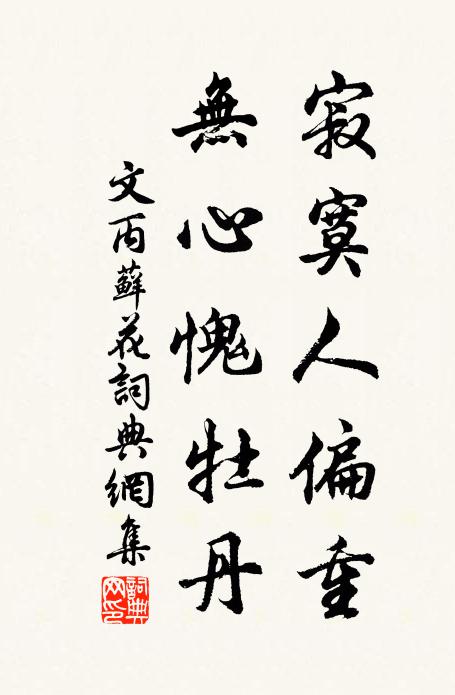 寂寞人偏重
無心愧牡丹
文丙蘚花詞典網集
詞典網印